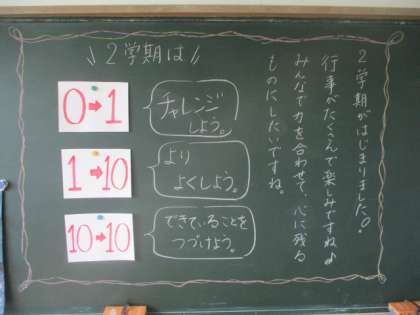 \\ 2学期は //
0➡1
チャレンジ
しよう。
1➡10
より
よくしよう。
10➡10
できていることを
つづけよう。
2学期がはじまりました!!
行事がたくさんで楽しみですね♪
みんなで力を合わせて、心に残る
ものにしたいですね。